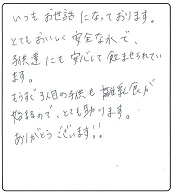 いつもお世話になっております。
とてもおいしく安全な水で、
子供達にも安心して飲ませられてい
ます。
もうすぐ3人目の子供も離乳食が
始まるので、とても助かります。
ありがとうございます!!